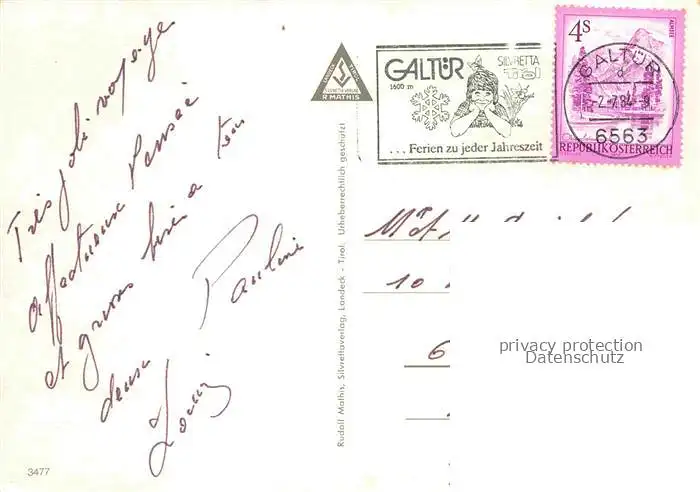 Très joli voyage
affectueuse Pensée
et grosses bises a tous
deux
Pauline
Louis
3477
Rudolf Mathis, Silvrettaverlag, Landeck - Tirol. Urheberrechtlich geschützt!
R MATHIS
GALTÜR
1600 m
SILVRETTA
tirol
... Ferien zu jeder Jahreszeit
GALTÜR
a
-2.-7.84-9
6563
4S
ALMSEE
REPUBLIK ÖSTERREICH
10
6
privacy protection
Datenschutz